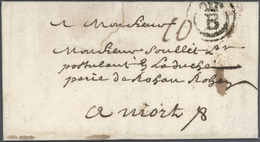 A Monsieur
10
B
Monsieur Soullet
postulant La duché
pairie de Rohan Rohan
a niort 8